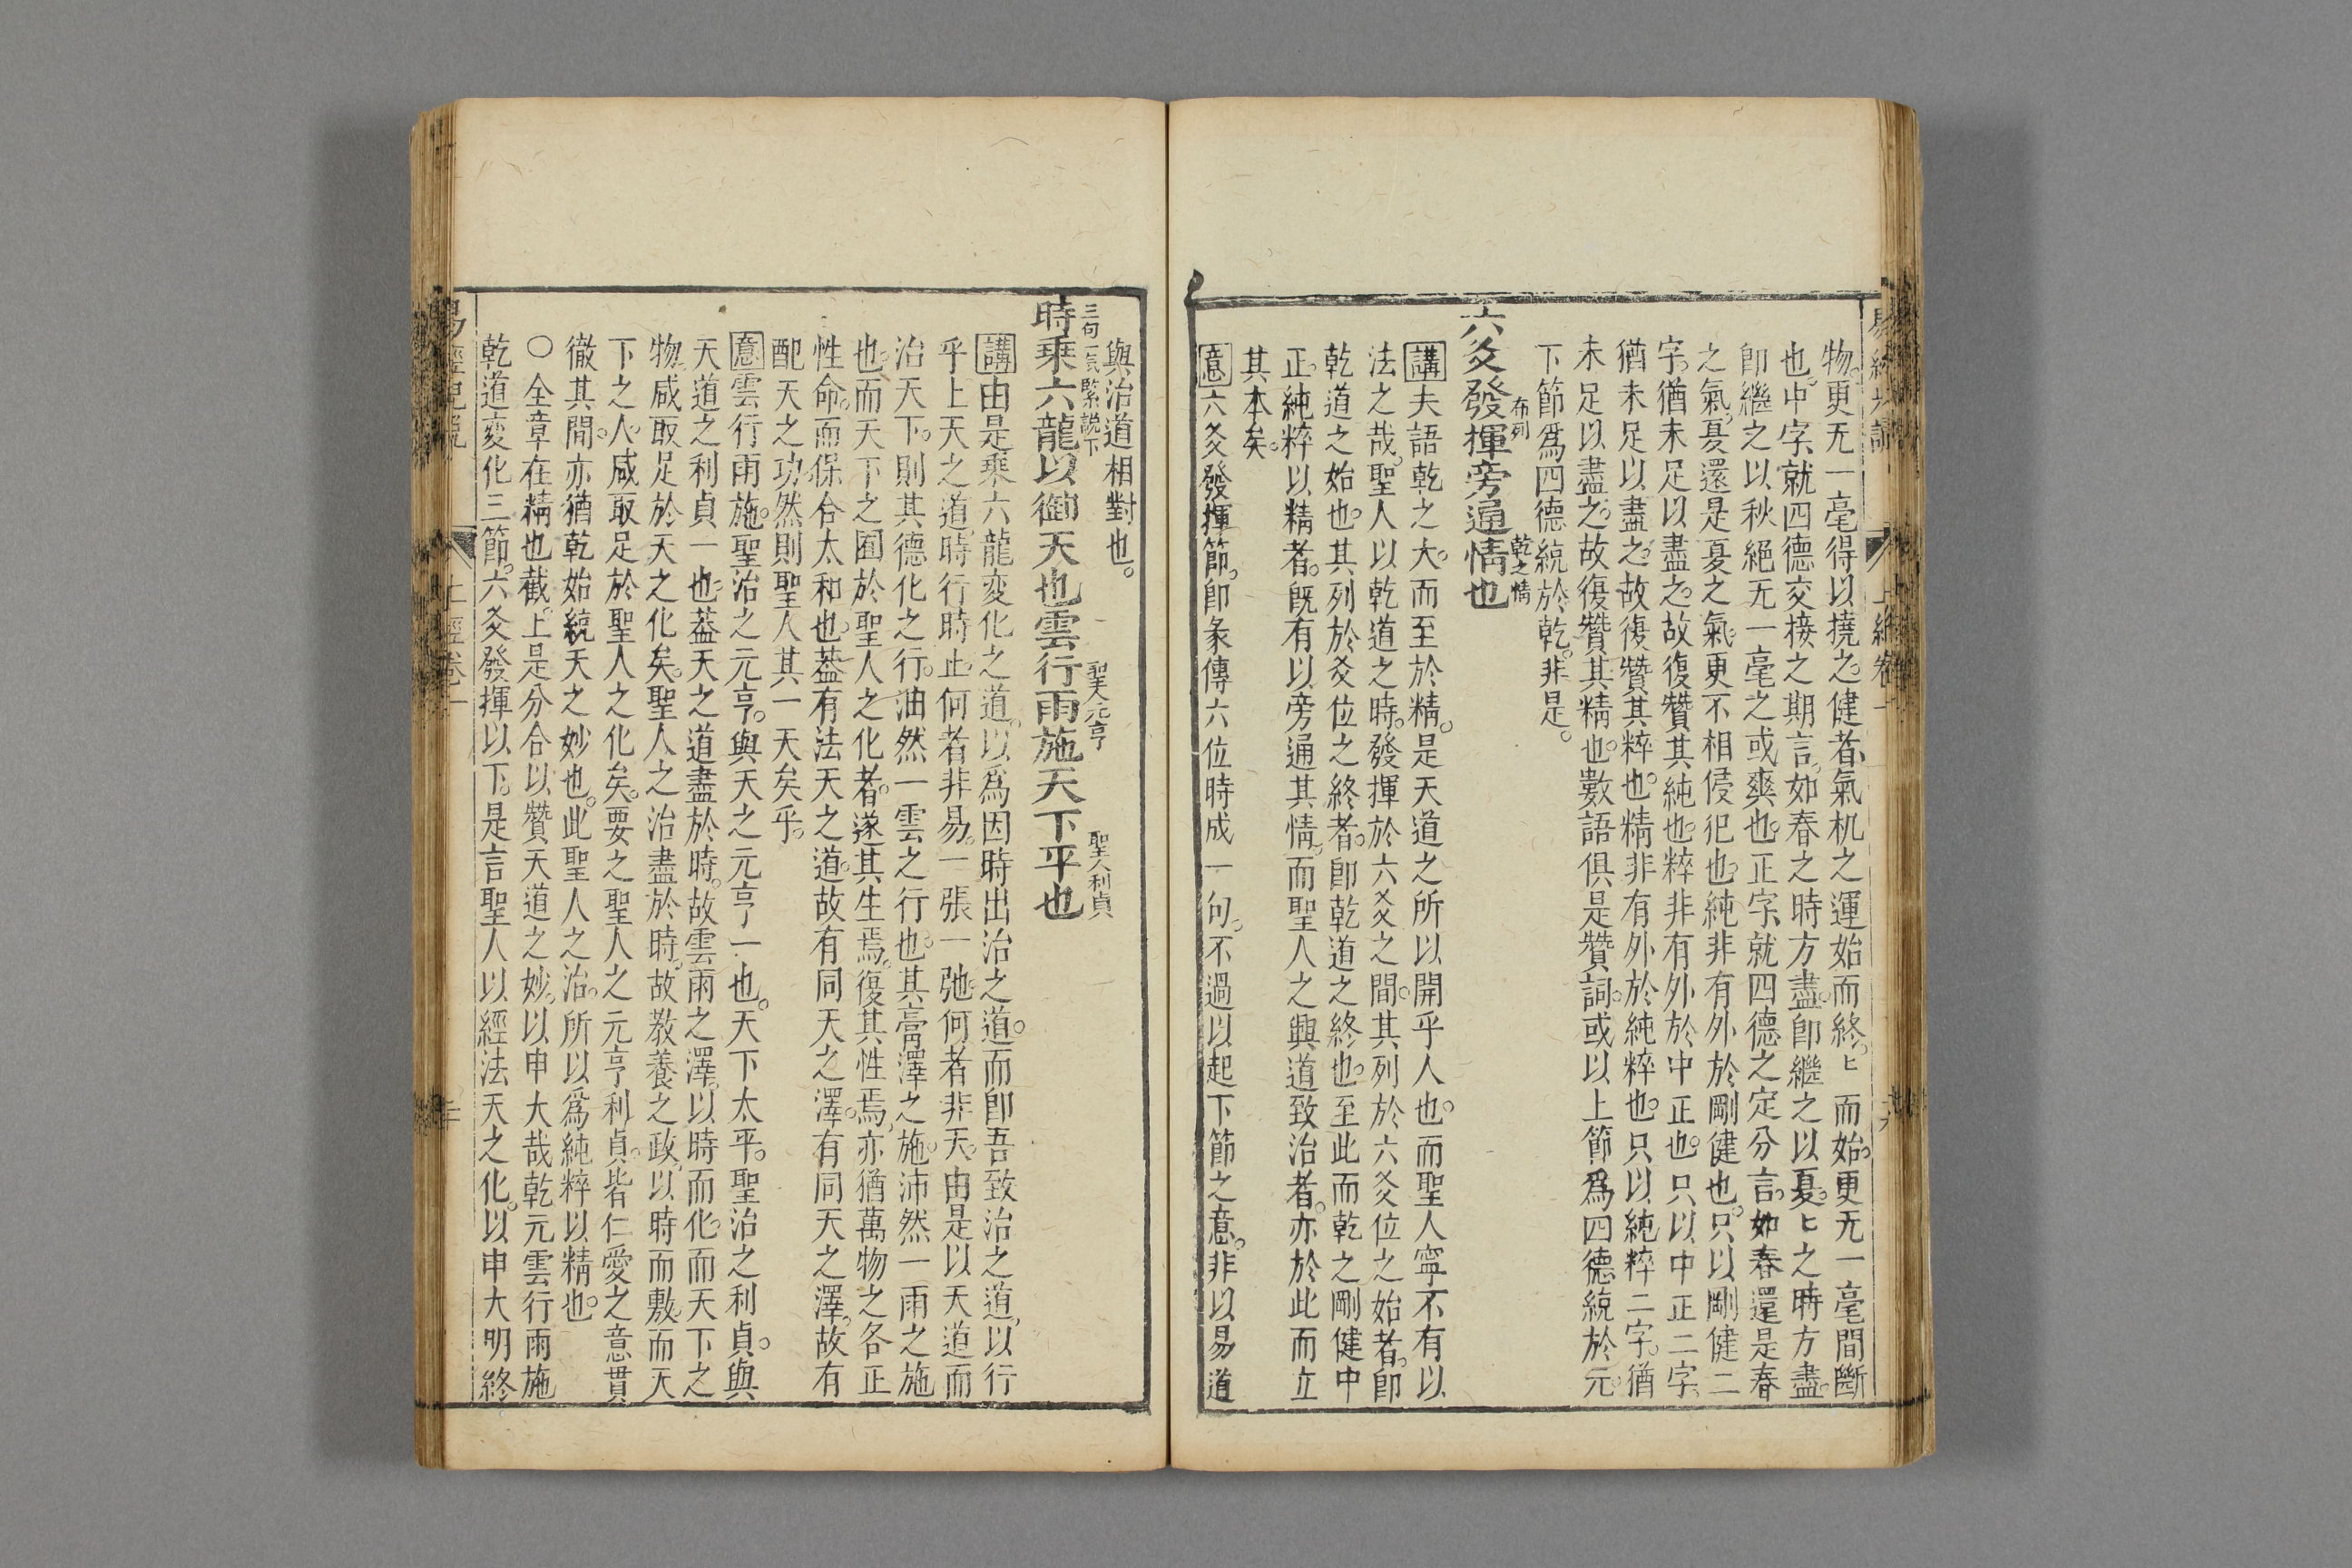 物。更无一毫得以撓之。健者氣机之運始而終。〻而始。更无一毫間斷
也。中字就四德交接之期言。如春之時方盡。卽繼之以夏。〻之時方盡。
卽繼之以秋。絕无一毫之或爽也。正字就四德之定分言。如春還是春
之氣。夏還是夏之氣。更不相侵犯也。純非有外於剛健也。只以剛健二
字。猶未足以盡之。故復贊其純也。粹非有外於中正也。只以中正二字。
猶未足以盡之。故復贊其粹也。精非有外於純粹也。只以純粹二字。猶
未足以盡之。故復贊其精也。數語俱是贊詞。或以上節爲四德統於元。
下節爲四德統於乾。非是。
布列 乾之情
六爻發揮旁通情也
講夫語乾之大。而至於精。是天道之所以開乎人也。而聖人寧不有以
法之哉。聖人以乾道之時。發揮於六爻之間。其列於六爻位之始者。卽
乾道之始也。其列於爻位之終者。卽乾道之終也。至此而乾之剛健中
正。純粹以精者。旣有以旁通其情。而聖人之興道致治者。亦於此而立
其本矣。
意六爻發揮節。卽彖傳六位時成一句。不過以起下節之意。非以易道
與治道相對也。
三句一氣緊說下 聖人元亨 聖人利貞
時乘六龍以御天也雲行雨施天下平也
講由是乘六龍変化之道。以爲因時出治之道。而卽吾致治之道。以行
乎上天之道。時行時止。何者非易。一張一弛。何者非天。由是以天道而
治天下。則其德化之行。油然一雲之行也。其膏澤之施。沛然一雨之施
也。而天下之囿於聖人之化者。遂其生焉。復其性焉。亦猶萬物之各正
性命。而保合太和也。葢有法天之道。故有同天之澤。有同天之澤。故有
配天之功。然則聖人其一天矣乎。
意雲行雨施。聖治之元亨。與天之元亨一也。天下太平。聖治之利貞。與
天道之利貞一也。葢天之道盡於時。故雲雨之澤。以時而化。而天下之
物咸取足於天之化矣。聖人之治盡於時。故教養之政。以時而敷。而天
下之人。咸取足於聖人之化矣。要之聖人之元亨利貞。皆仁愛之意貫
徹其間。亦猶乾始統天之妙也。此聖人之治。所以爲純粹以精也。
○全章在精也截。上是分合以贊天道之妙。以申大哉乾元雲行雨施
乾道変化三節。六爻發揮以下。是言聖人以經法天之化。以申大明終